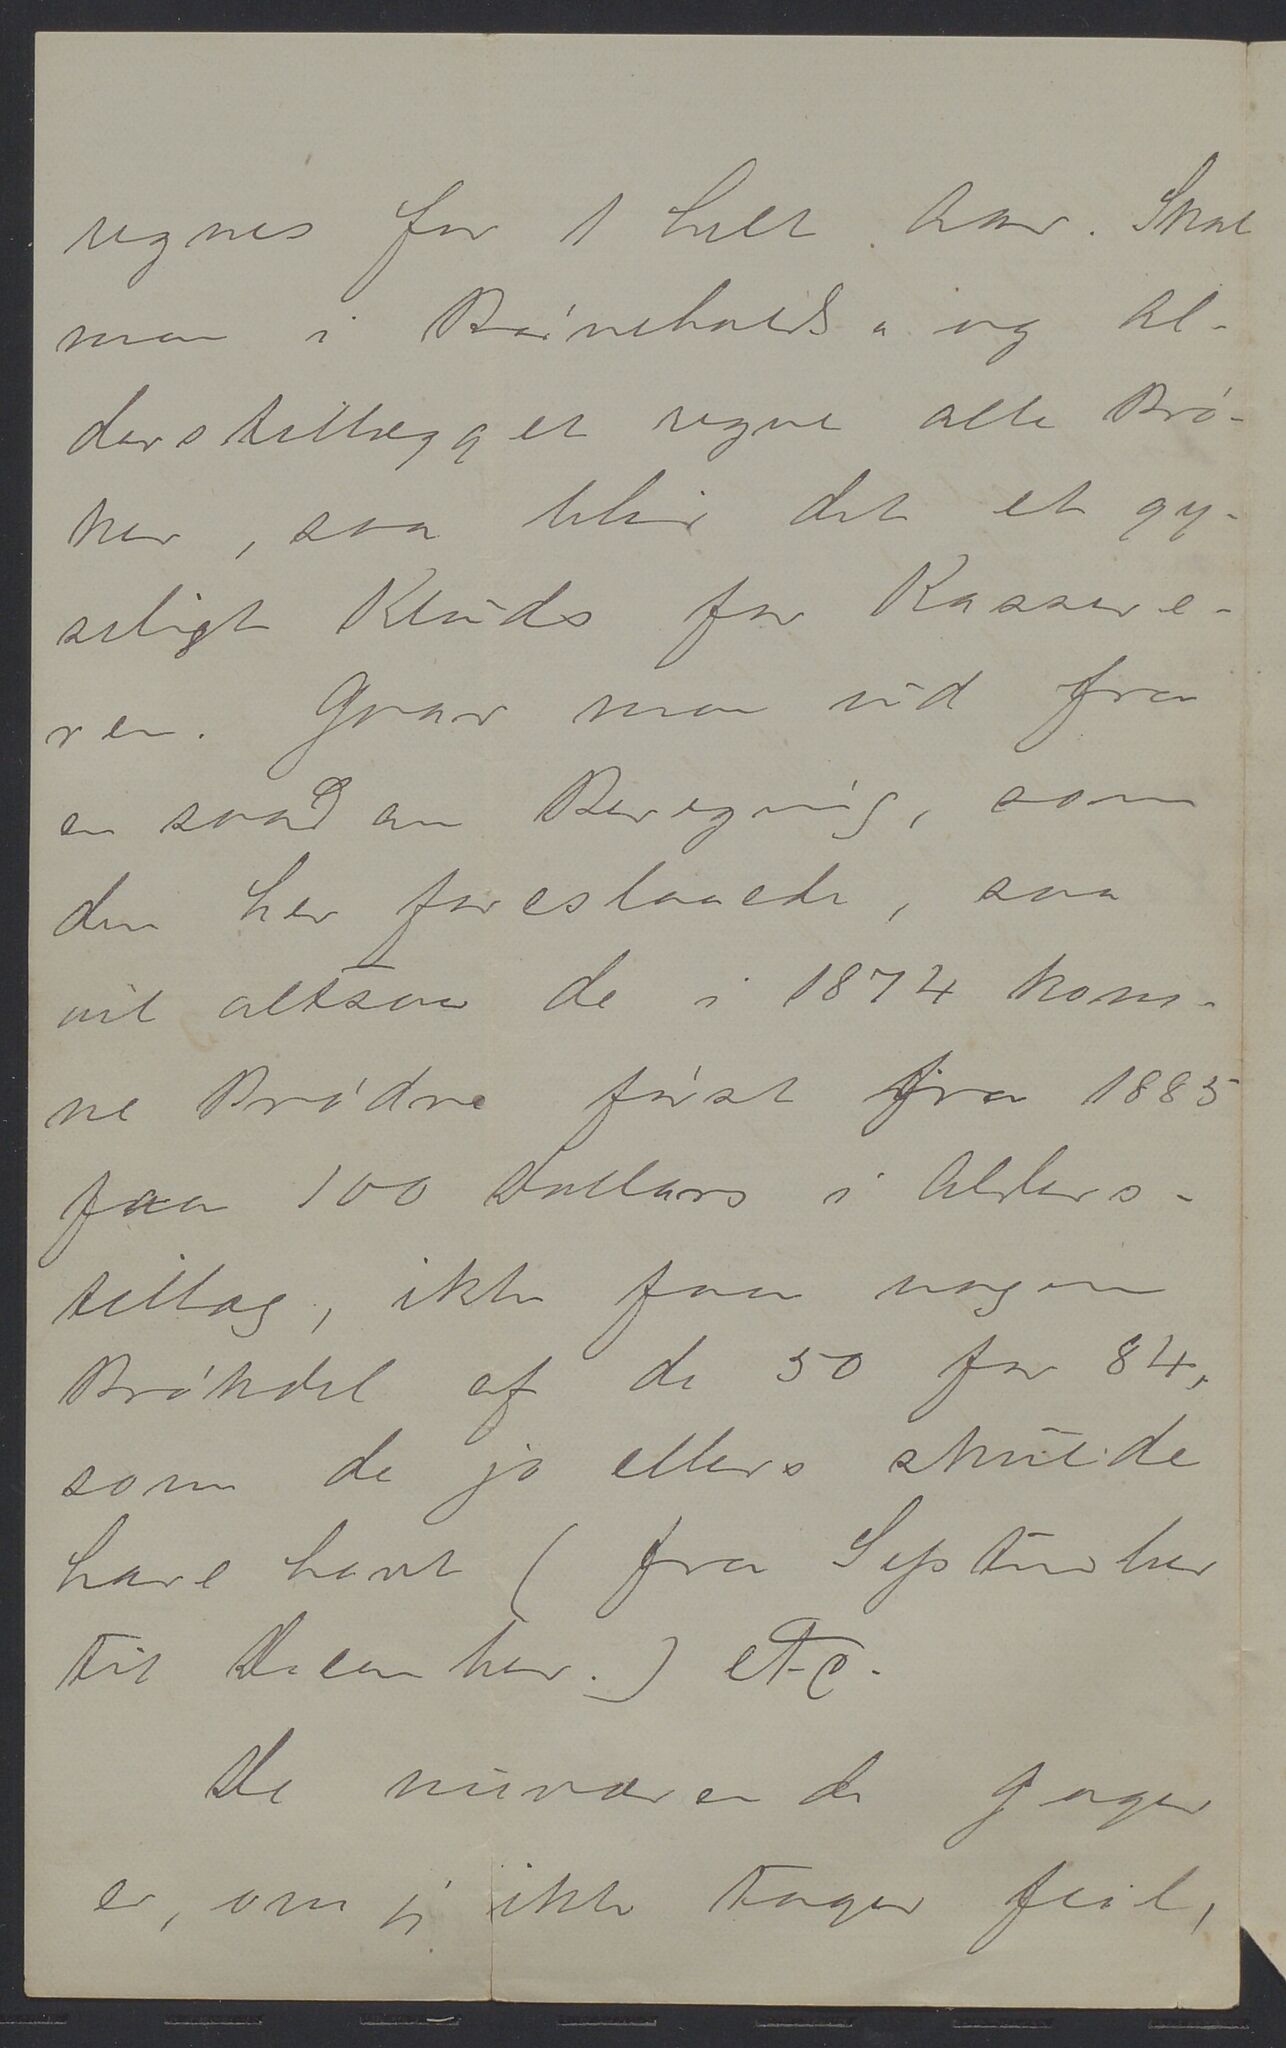 regnes for 1 helt Aar. Skal
man i Børneholds- og Al-
derstillægget regne alle Brø-
ker, saa blir det et gy-
seligt Kluds for Kassere-
ren. Gaar man ud fra
en saadan Beregnig, som
den her foreslaaede, saa
vil altsaa de i 1874 kom-
ne Brødre først fra 1885
faa 100 Dollars i Alders-
tillæg, ikke faa nogen
Brøkdel af de 50 for 84,
som de jo ellers skulde
have havt (fra September
til December.) etc.
De nuværende Gager
er, om jeg ikke tager feil,